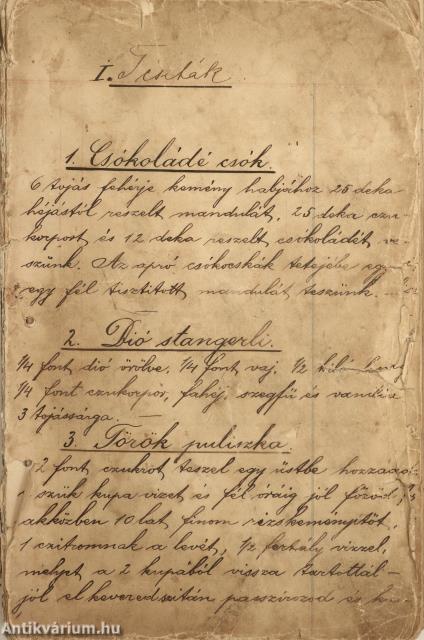 I. Tészták
1. Csókoládé csók.
6 tojás fehérje kemény habjához 25 deka
héjástól reszelt mandulát, 25 deka czu-
korport és 12 deka reszelt csókoládét ve-
szünk. Az apró csókocskák tetejébe egy-
egy fél tisztított mandulát teszünk. —
2. Dió stangerli.
1/4 font dió őrölve, 1/4 font vaj, 1/2
1/4 font czukorpor, fahéj, szegfű és vanilia
3 tojássárga. —
3. Török puliszka.
2 font czukrot teszel egy üstbe
szűk kupa vizet és fél óráig jól főzöd,
akközben 10 lat finom rizskeményítőt,
1 czitromnak a levét, 1/2 fertály vízzel,
melyet a 2 kupából vissza tartottál
jól elkevered azután passzirozod és
Antikvárium.hu